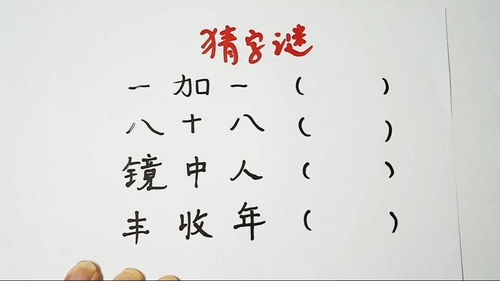 猜字谜
一加一（ ）
八十八（ ）
镜中人（ ）
丰收年（ ）